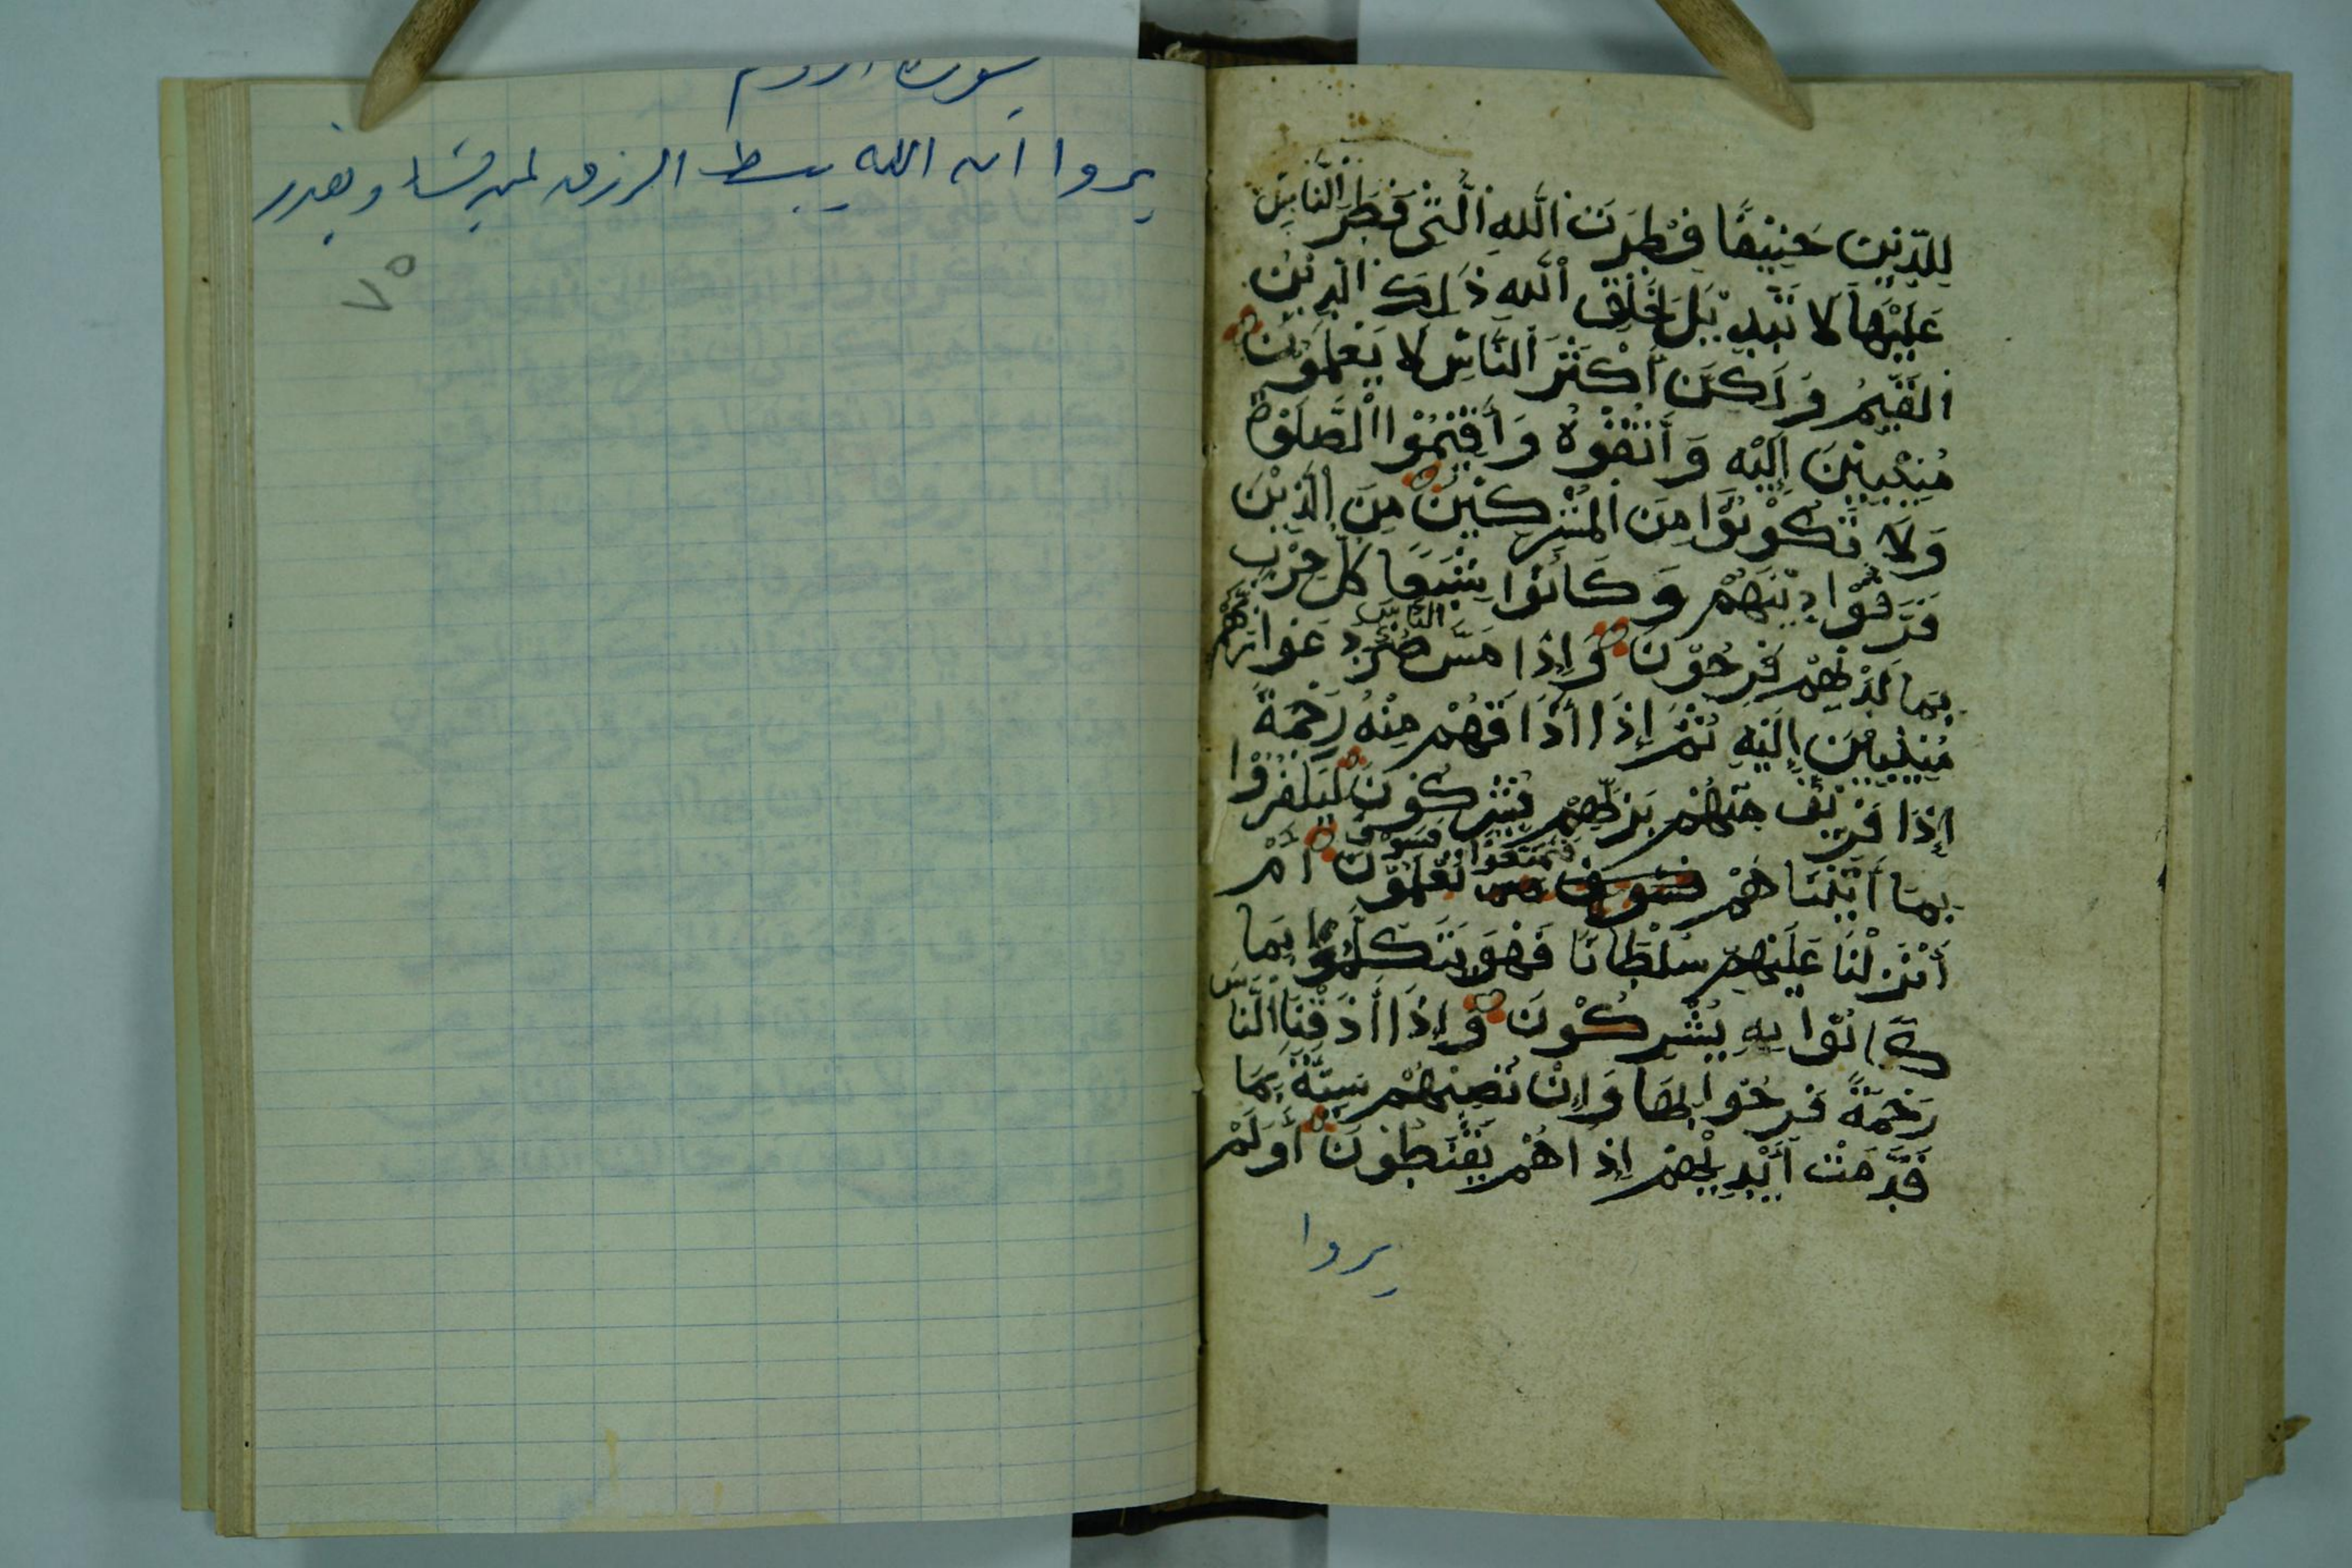 للدين حنيفا فطرت الله التى فطر الناس
عليها لا تبديل لخلق الله ذلك الدين
القيم ولكن أكثر الناس لا يعلمون
منيبين إليه وأتقوه وأقيموا الصلوة
ولا تكونوا من المشركين من الذين
فرقوا دينهم وكانوا شيعا كل حزب
بما لديهم فرحون وإذا مس الناس ضر دعوا ربهم
منيبين إليه ثم إذا أذاقهم منه رحمة
إذا فريق منهم بربهم يشركون ليكفروا
بما أتيناهم فتمتعوا فسوف تعلمون أم
أنزلنا عليهم سلطانا فهو يتكلم بما
كانوا به يشركون وإذا أذقنا الناس
رحمة فرحوا بها وإن تصبهم سيئة بما
قدمت أيديهم إذا هم يقنطون أولم
يروا
سورة الروم
يروا ان الله يبسط الرزق لمن يشاء ويقدر
٧٥